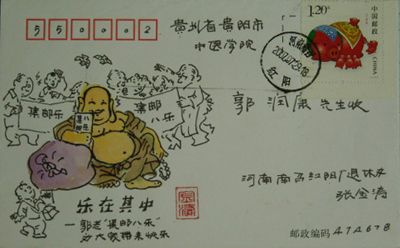 550002
贵州省贵阳市
中医学院
1.20元
中国邮政
CHINA
集邮乐
八乐
集邮
集邮
八乐
郭润康先生收
乐在其中
一郭老"集邮八乐"
为大家带来快乐
河南南召红阳厂退休办
张金涛
邮政编码 474678